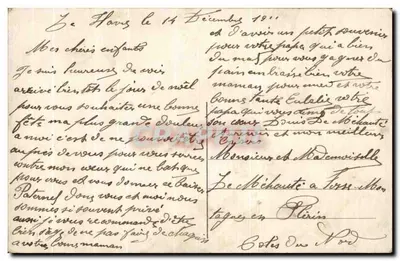 Le Havre le 14 Décembre 1911
Mes chéres enfants
Je suis heureuse de voir
arrivé bientot le jour de noël
pour vous souhaiter une bonne
fête ma plus grande douleur
a moi c'est de ne pouvoir être
au près de vous pour vous serrer
contre mon cœur qui ne batque
pour vous et vous donner ce baiser
Paternel dont vous et moi nous
sommes si souvent privé
aussi je vous recommande d'être
bien sage de ne pas faire de chagrin
a votre bonne maman
et d'avoir un petit souvenir
pour votre papa qui a bien
du mal pour vous gagner du
pain embrassé bien votre
maman pour moi et votre
bonne tante Eulalie votre
papa qui vous aime de tout
son cœur Louis Le Méhauté
et mon meilleur
Monsieur et Mademoiselle
Le Méhauté a
en Plérin
Cotes du Nord